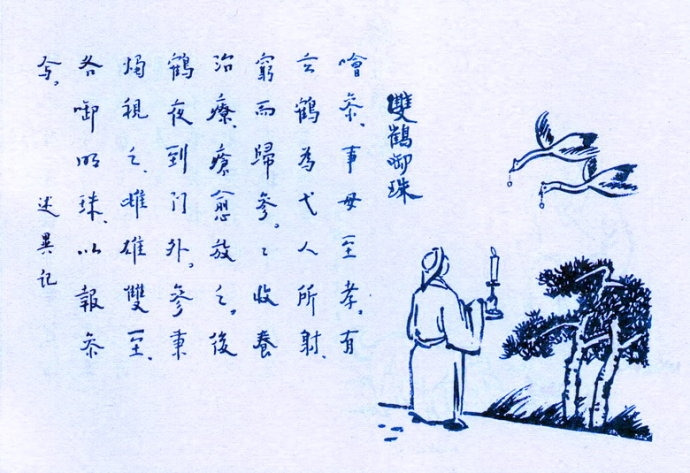 雙鶴啣珠
噲參、事母至孝。有
玄鶴為弋人所射、
窮而歸參。〻收養
治療、瘡愈放之。後
鶴夜到门外。參秉
燭視之、雌雄雙至、
各啣明珠、以報參
焉。
述異記